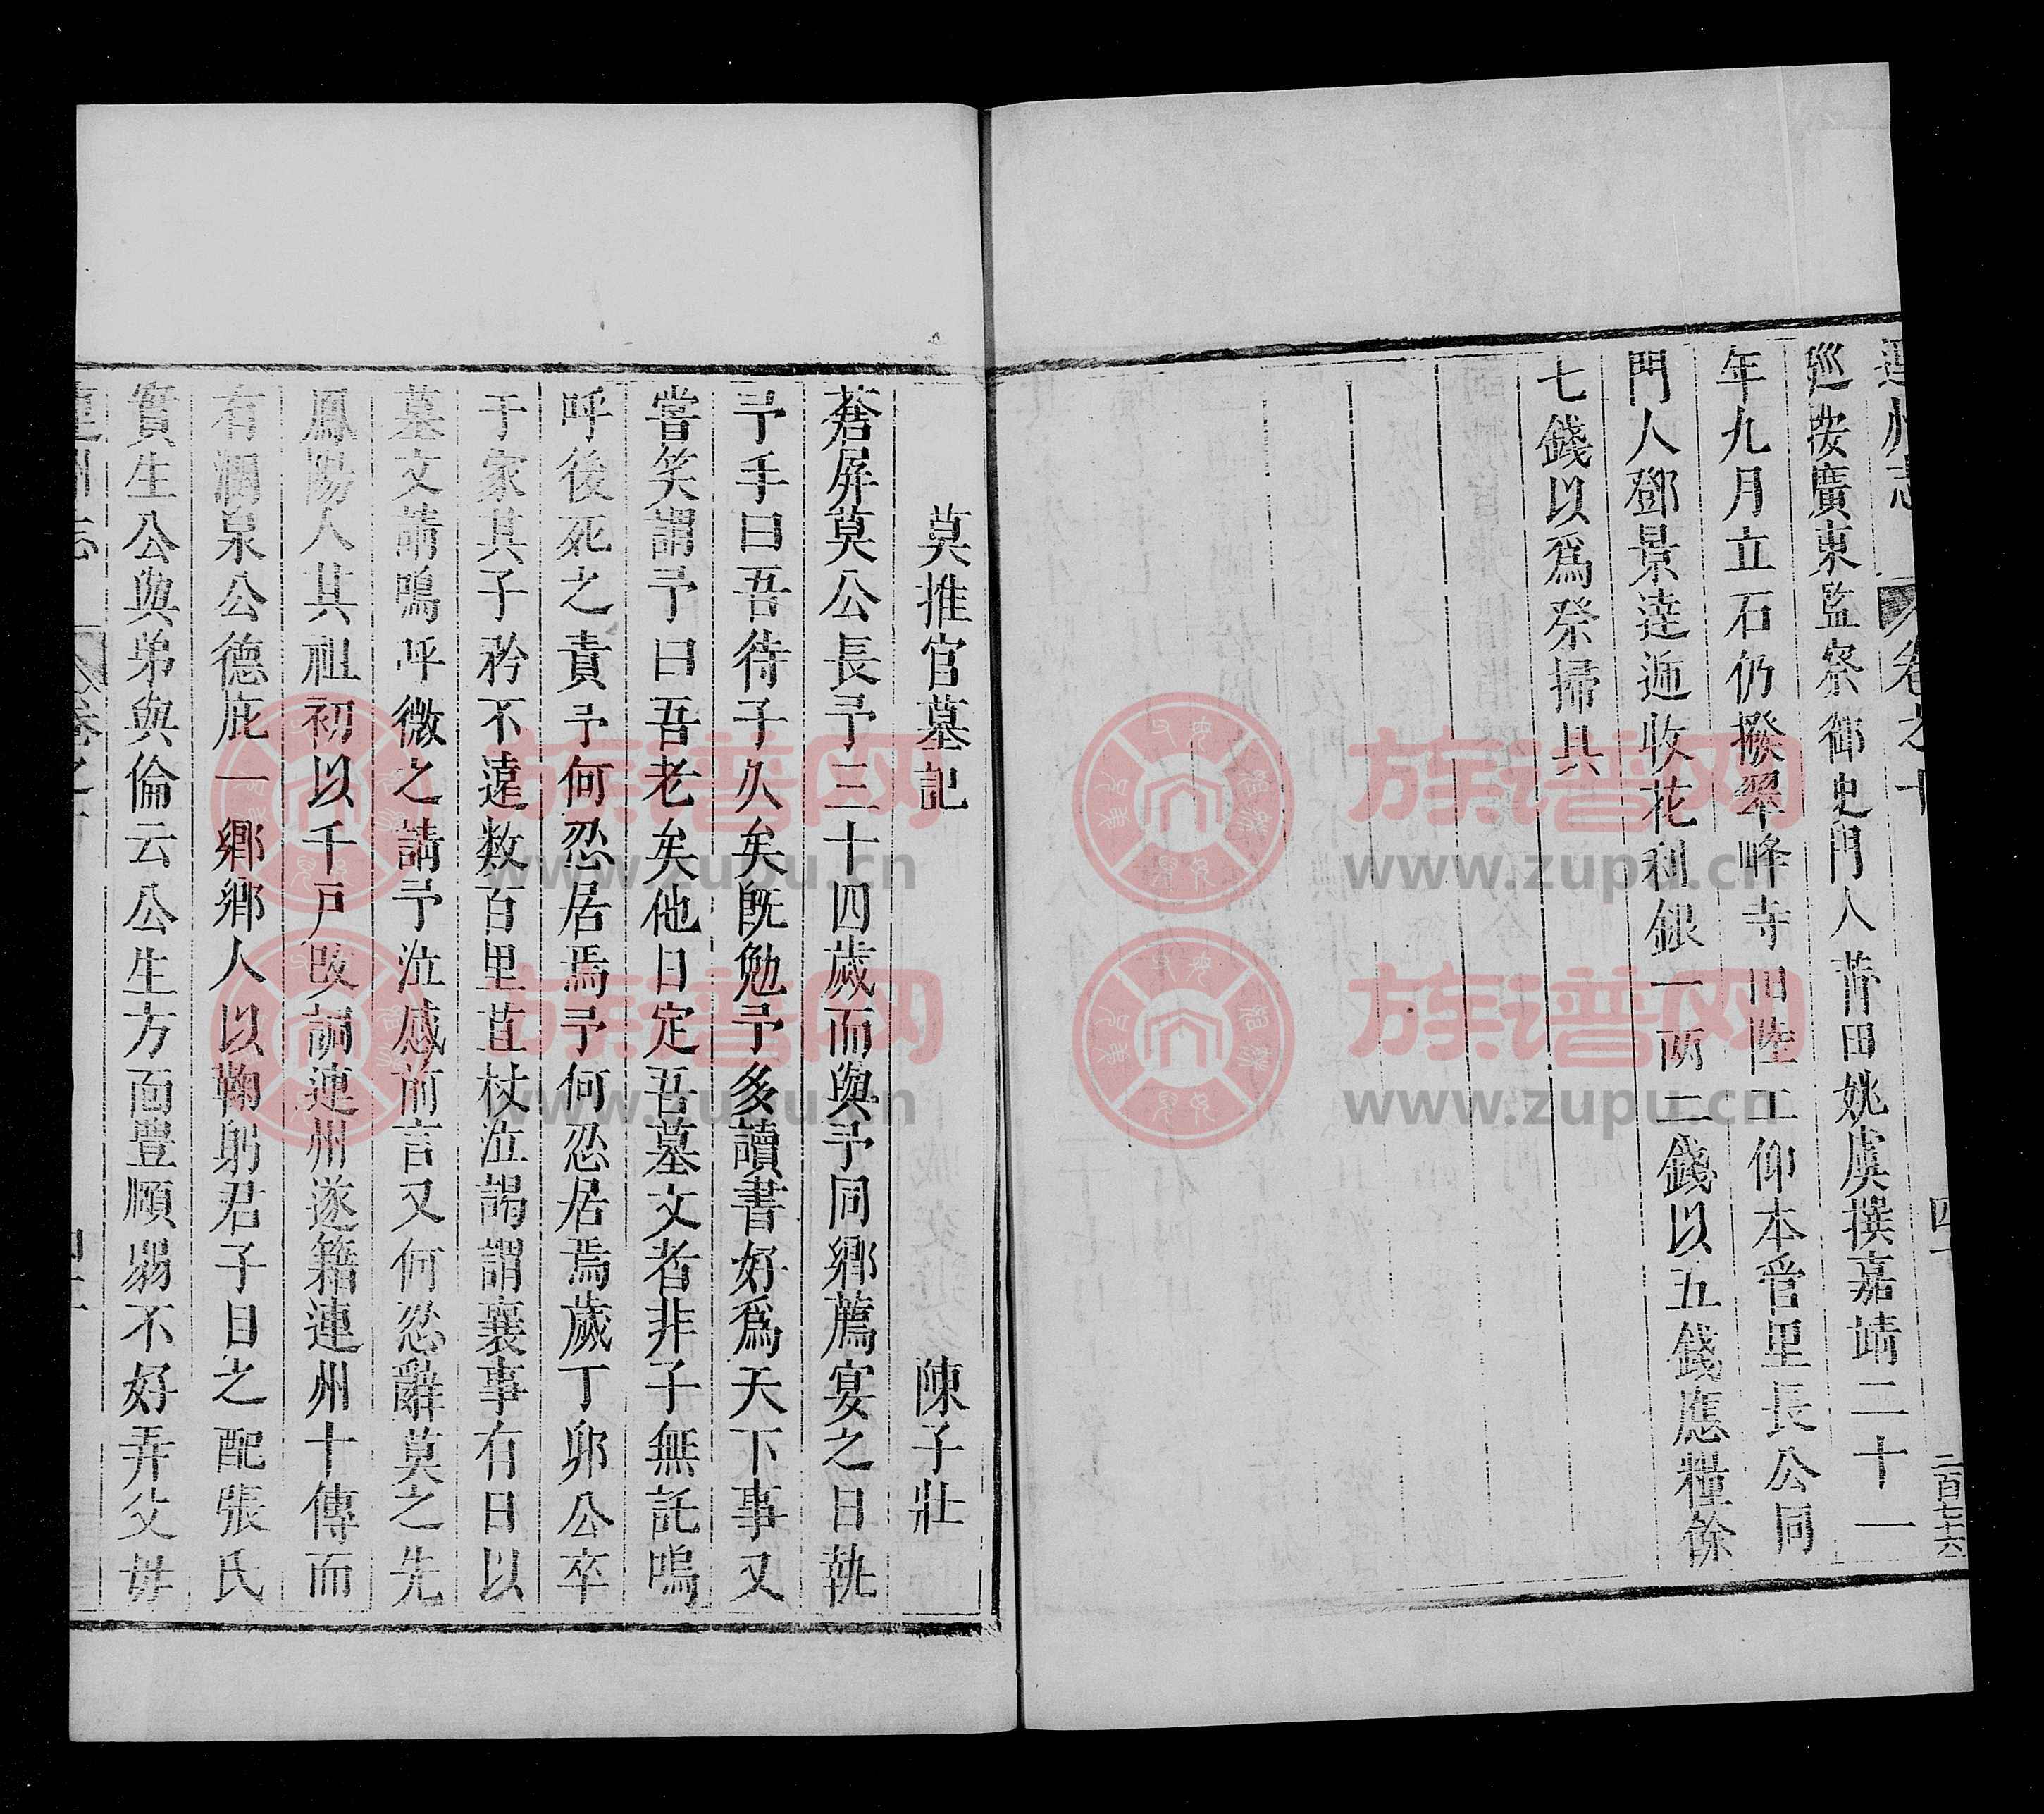 連州志 卷之十 四十 二百七十六
巡按廣東監察御史門人莆田姚虞撰嘉靖二十一
年九月立石仍撥翠峰寺田陸工仰本管里長公同
門人鄧景逹逓收花利銀一兩二錢以五錢應糧餘
七錢以爲祭掃具
莫推官墓記 陳子壯
蒼屏莫公長予三十四歲而與予同鄉薦宴之日執
予手曰吾待子久矣旣勉予多讀書好爲天下事又
嘗笑謂予曰吾老矣他日定吾墓文者非子無託嗚
呼後死之責予何忍居焉予何忍居焉歲丁卯公卒
于家其子矜不遠数百里苴杖泣謁謂襄事有日以
墓文請嗚呼微之請予泣感前言又何忍辭莫之先
鳳陽人其祖初以千戸改調連州遂籍連州十傳而
有潤泉公德庇一鄉鄉人以鞠躬君子目之配張氏
實生公與弟與倫云公生方面豊頥弱不好弄父毋
連州志 卷之十
族谱网
www.zupu.cn
族谱网
www.zupu.cn
族谱网
www.zupu.cn
族谱网
www.zupu.cn